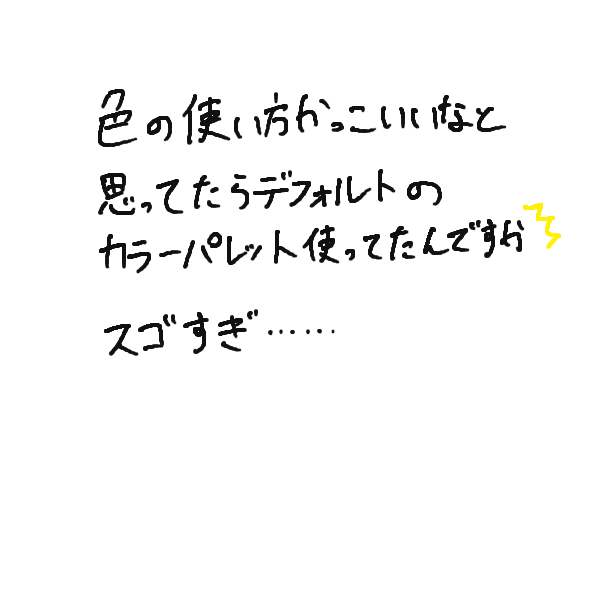 色の使い方かっこいいなと
思ってたらデフォルトの
カラーパレット使ってたんですか
スゴすぎ……